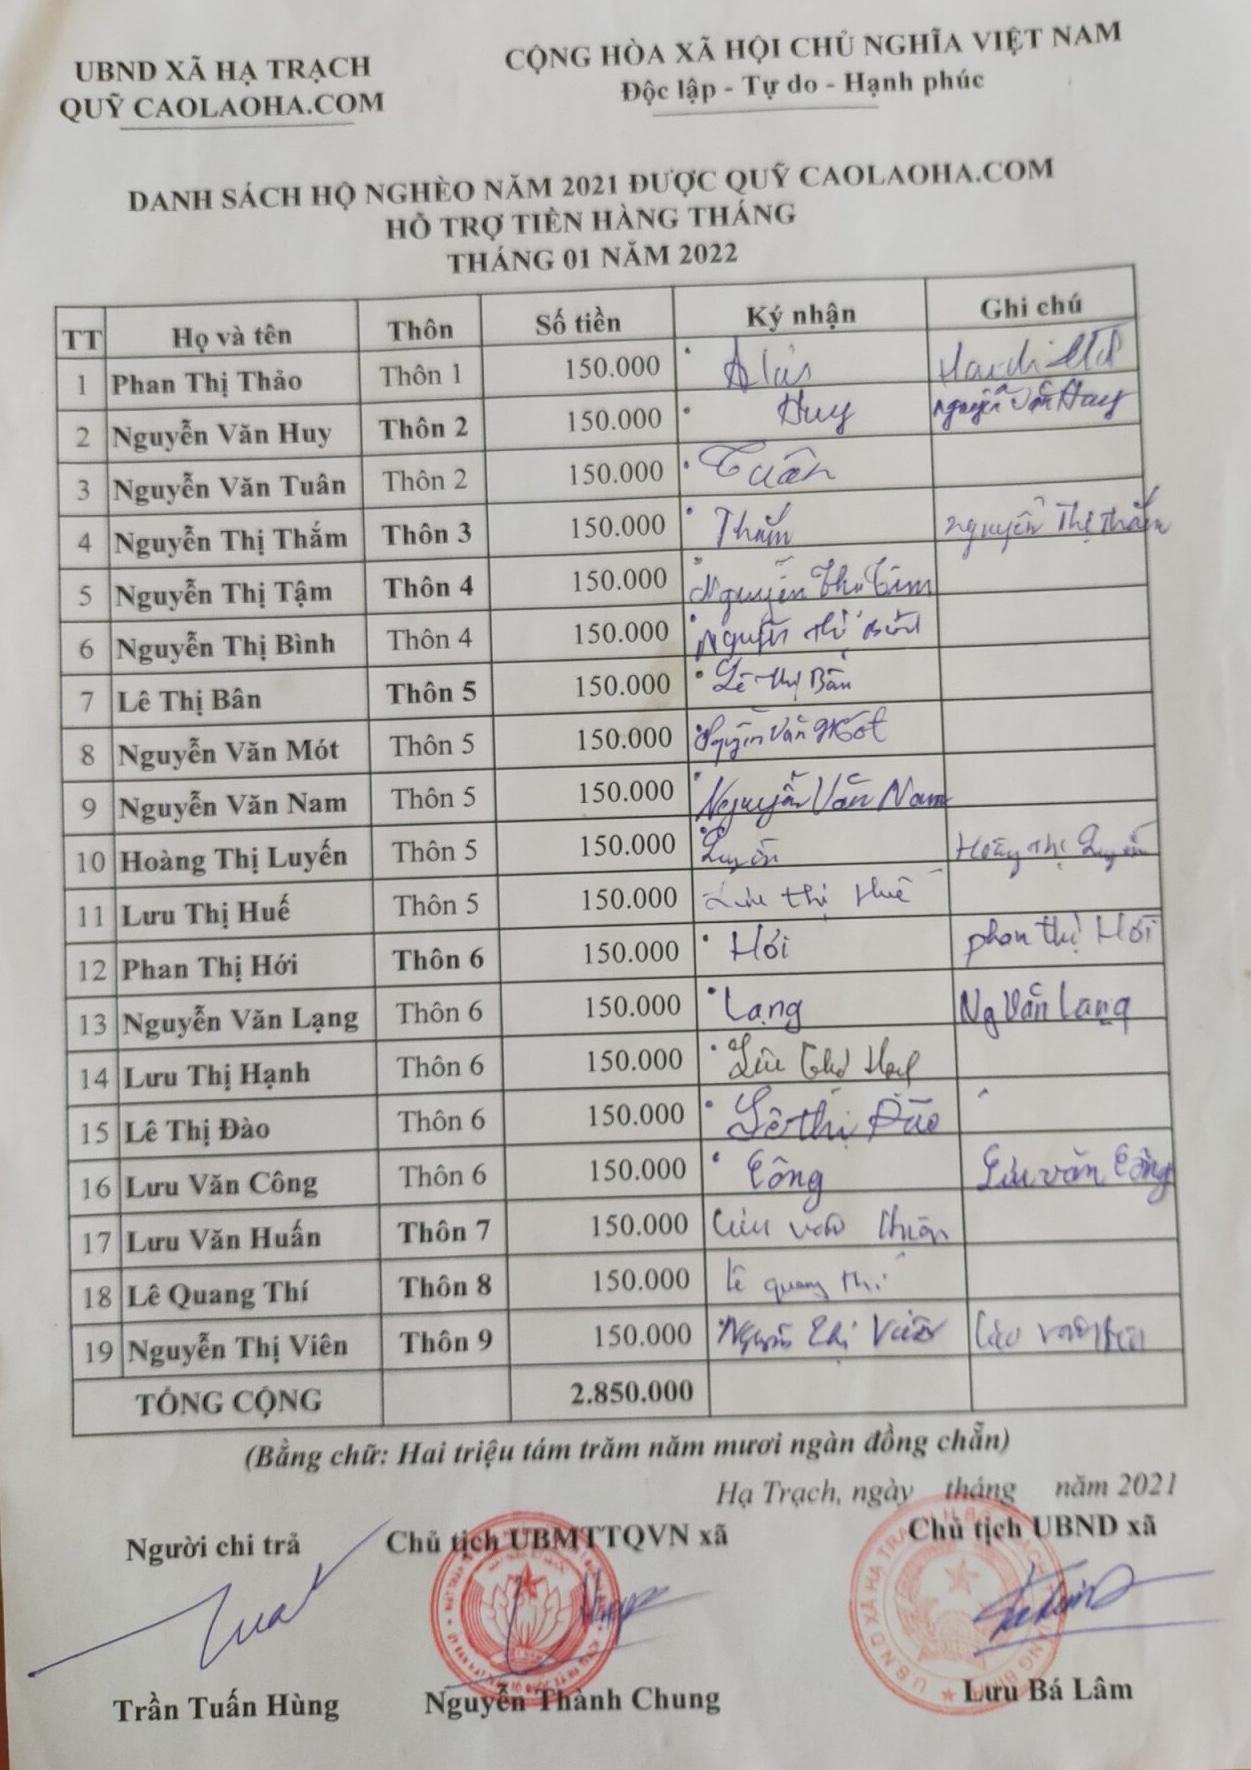 UBND XÃ HẠ TRẠCH
QUỸ CAOLAOHA.COM
CỘNG HÒA XÃ HỘI CHỦ NGHĨA VIỆT NAM
Độc lập - Tự do - Hạnh phúc
DANH SÁCH HỘ NGHÈO NĂM 2021 ĐƯỢC QUỸ CAOLAOHA.COM
HỖ TRỢ TIỀN HÀNG THÁNG
THÁNG 01 NĂM 2022
TT Họ và tên Thôn Số tiền Ký nhận Ghi chú
1 Phan Thị Thảo Thôn 1 150.000
2 Nguyễn Văn Huy Thôn 2 150.000 Huy Nguyễn Văn Huy
3 Nguyễn Văn Tuân Thôn 2 150.000 Tuân
4 Nguyễn Thị Thắm Thôn 3 150.000 Thắm Nguyễn Thị Thắm
5 Nguyễn Thị Tậm Thôn 4 150.000 Nguyễn Thị
6 Nguyễn Thị Bình Thôn 4 150.000 Nguyễn Thị
7 Lê Thị Bân Thôn 5 150.000 Lê Thị Bân
8 Nguyễn Văn Mót Thôn 5 150.000 Nguyễn Văn Mót
9 Nguyễn Văn Nam Thôn 5 150.000 Nguyễn Văn Nam
10 Hoàng Thị Luyến Thôn 5 150.000 Luyến Hoàng Thị Luyến
11 Lưu Thị Huế Thôn 5 150.000 Lưu Thị Huế
12 Phan Thị Hới Thôn 6 150.000 Hới phan thị Hới
13 Nguyễn Văn Lạng Thôn 6 150.000 Lạng Ng Văn Lạng
14 Lưu Thị Hạnh Thôn 6 150.000 Lưu Thị
15 Lê Thị Đào Thôn 6 150.000 Lê Thị Đào
16 Lưu Văn Công Thôn 6 150.000 Công Lưu văn Công
17 Lưu Văn Huấn Thôn 7 150.000 Lưu văn
18 Lê Quang Thí Thôn 8 150.000 Lê quang thí
19 Nguyễn Thị Viên Thôn 9 150.000 Nguyễn Thị Viên
TỔNG CỘNG 2.850.000
(Bằng chữ: Hai triệu tám trăm năm mươi ngàn đồng chẵn)
Hạ Trạch, ngày tháng năm 2021
Người chi trả Chủ tịch UBMTTQVN xã Chủ tịch UBND xã
Trần Tuấn Hùng Nguyễn Thành Chung Lưu Bá Lâm